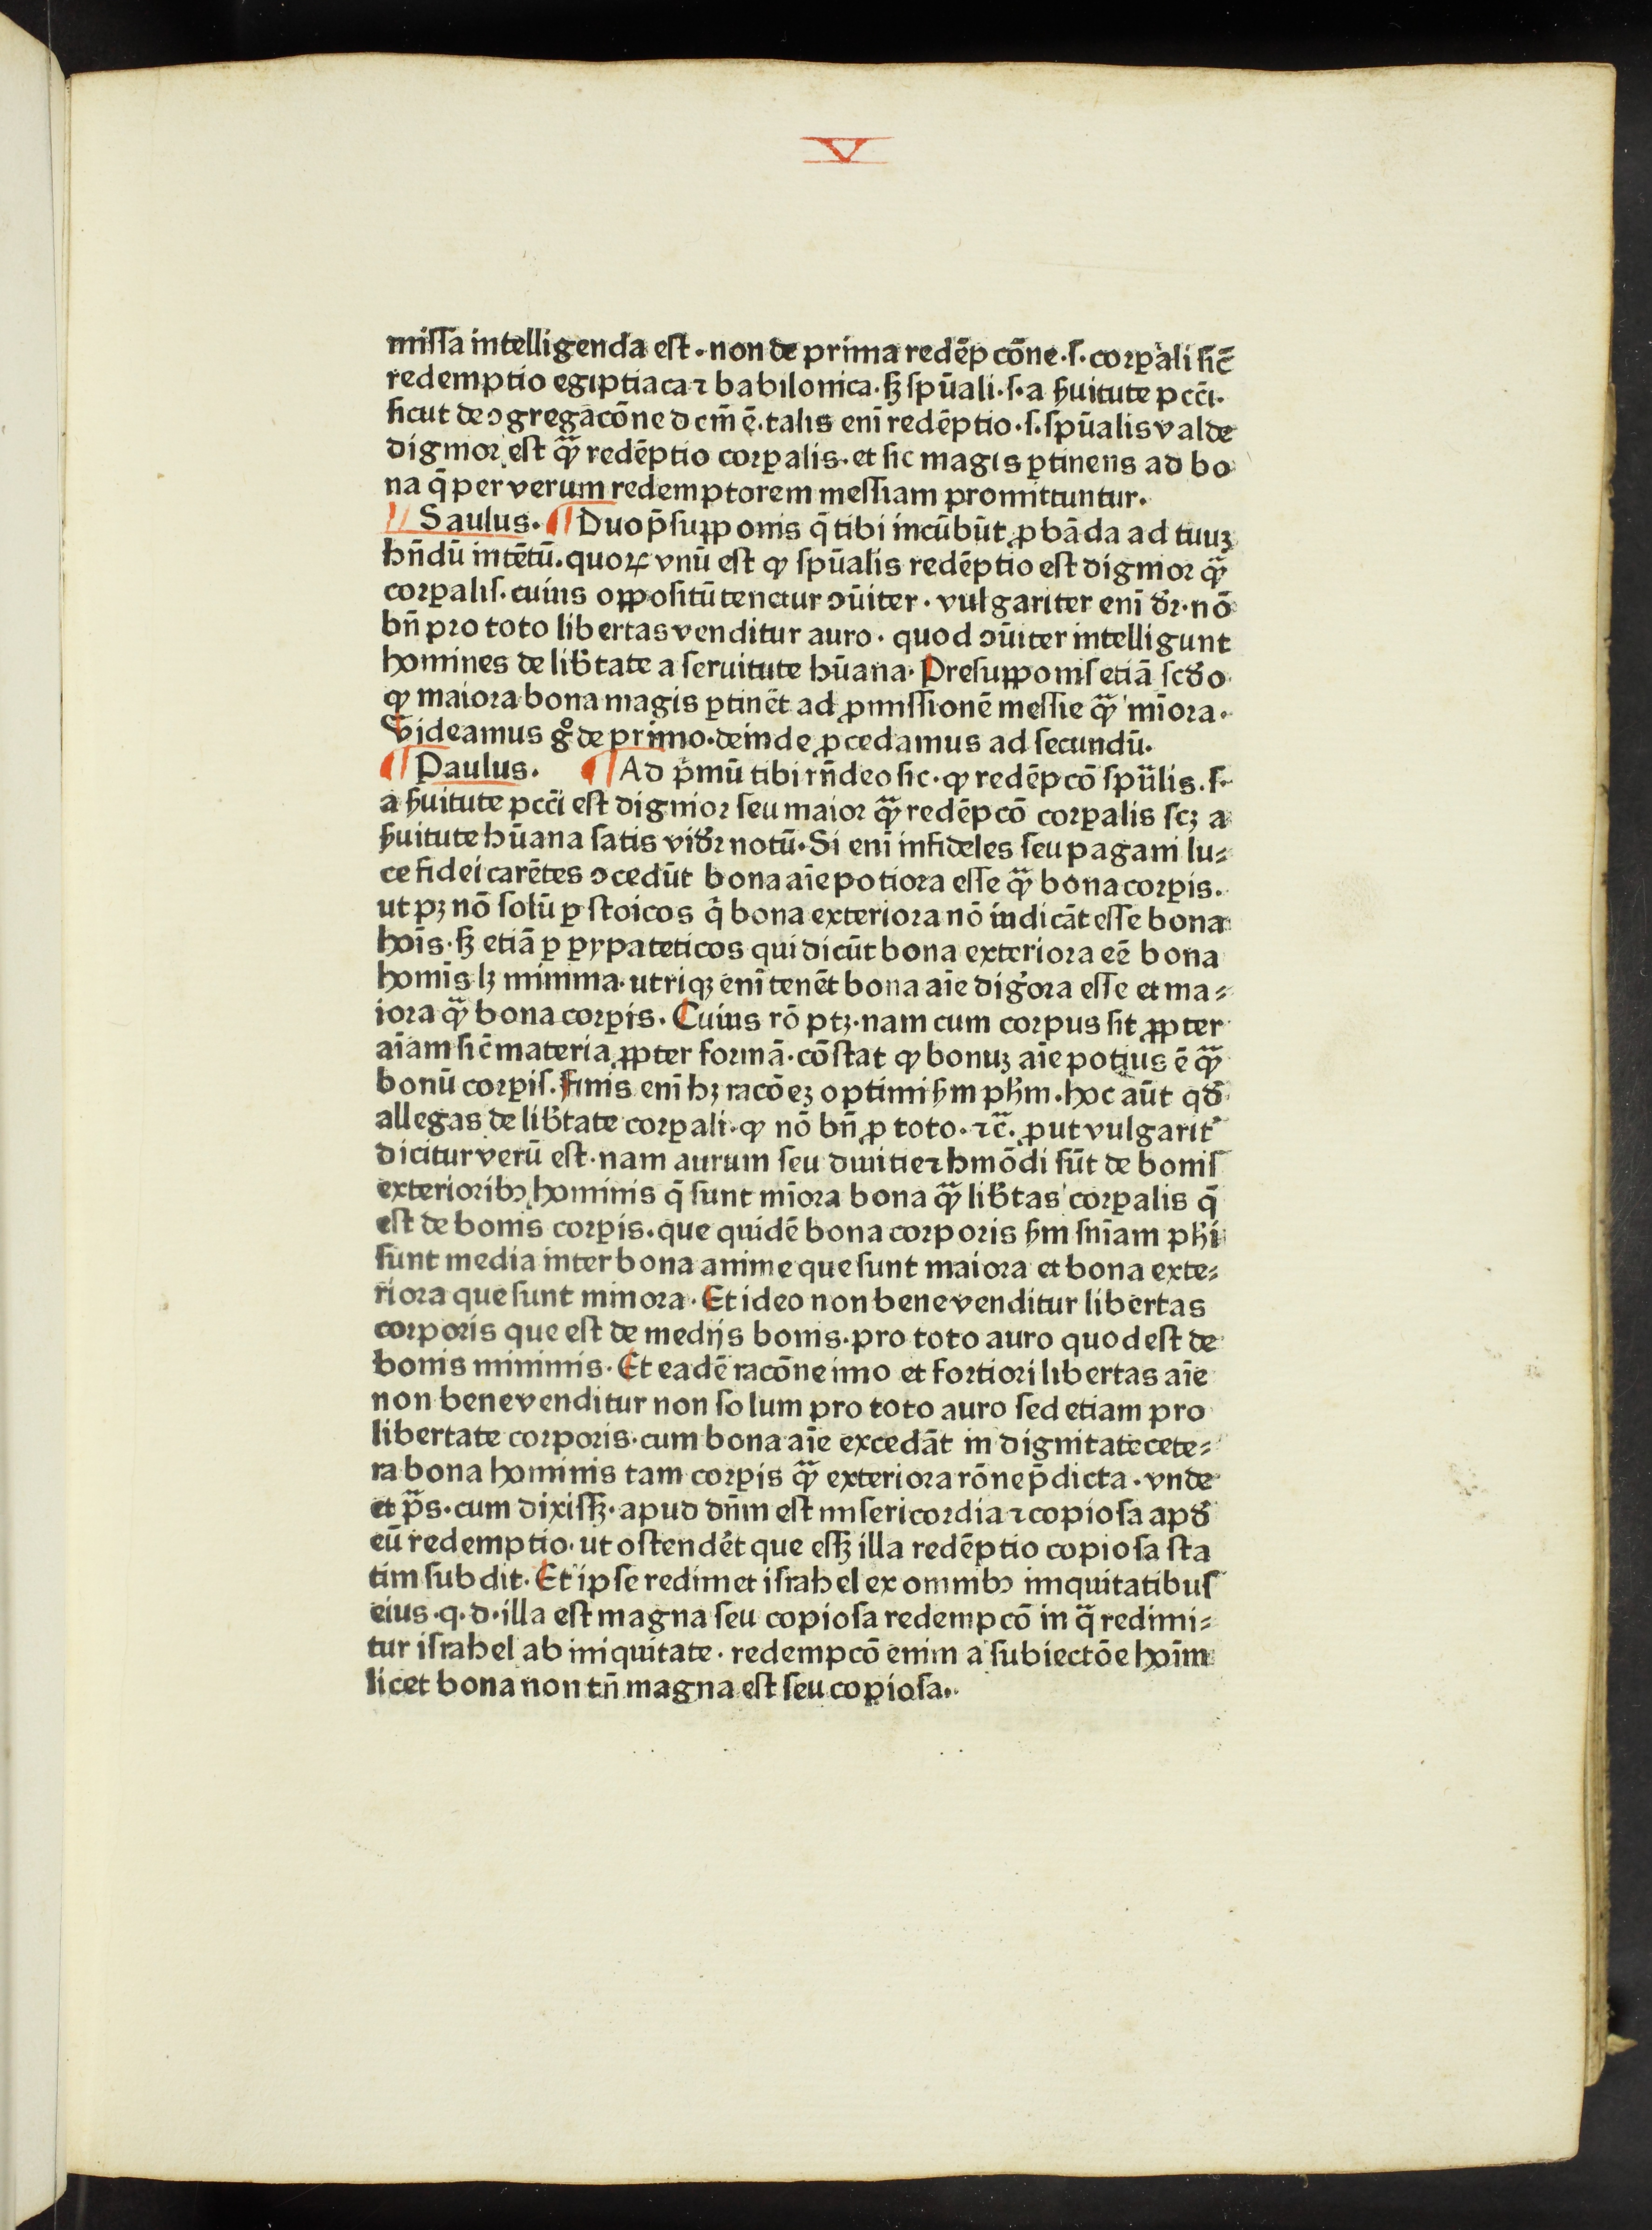 V
missa intelligenda est · non de prima redēpcōne · s · corꝑali sic̄
redemptio egiptiaca ⁊ babilonica · sꝫ spūali · s · a ẜuitute pcc̄i ·
sicut de ↄgregacōne dcm̄ ē · talis enī redēptio · s · spūalis valde
dignior est qᷓꝫ redēptio corꝑalis · et sic magis ꝑtinens ad bo
na q̄ per verum redemptorem messiam promittuntur ·
¶ Saulus · ¶ Duo p̄supponis q̄ tibi incūbūt ꝓbāda ad tuuꝫ
hn̄dū intētū · quoꝝ vnū est ꝙ spūalis redēptio est dignior qᷓꝫ
corꝑalis · cuius oppositū tenetur ↄūiter · vulgariter enī dr̄ · nō
bn̄ pro toto libertas venditur auro · quod ↄūiter intelligunt
homines de lib̄tate a seruitute hūana · Presupponis etiā scd̄o
ꝙ maiora bona magis ꝑtinēt ad ꝓmissionē messie qᷓꝫ miōra ·
Videamus gͦ de primo · deinde ꝓcedamus ad secundū ·
¶ Paulus · ¶ Ad p̄mū tibi rn̄deo sic · ꝙ redēpcō spūlis · s ·
a ẜuitute pcc̄i est dignior seu maior qᷓꝫ redēpcō corꝑalis scꝫ a
ẜuitute hūana satis vidr̄ notū · Si enī infideles seu pagani lu⸗
ce fidei carētes ↄcedūt bona aīe potiora esse qᷓꝫ bona corꝑis ·
ut pꝫ nō solū ꝑ stoicos q̄ bona exteriora nō iudicāt esse bona
hoīs · sꝫ etiā ꝑ pypateticos qui dicūt bona exteriora eē bona
homīs lꝫ minima · utriqꝫ enī tenēt bona aīe digōra esse et ma⸗
iora qᷓꝫ bona corꝑis · Cuius rō ptꝫ · nam cum corpus sit ꝓpter
aīam sic̄ materia ꝓpter formā · cōstat ꝙ bonuꝫ aīe potius ē qᷓꝫ
bonū corꝑis · Finis enī hꝫ racōeꝫ optimi ẜm pħm · hoc aūt qd̄
allegas de lib̄tate corꝑali · ꝙ nō bn̄ ꝓ toto · ⁊c̄ · ꝓut vulgarit᷑
dicitur verū est · nam aurum seu diuitie ⁊ hmōdi sūt de bonis
exterioribꝰ hominis q̄ sunt miōra bona qᷓꝫ lib̄tas corꝑalis q̄
est de bonis corꝑis · que quidē bona corporis ẜm sn̄iam pħi
sunt media inter bona anime que sunt maiora et bona exte⸗
riora que sunt minora · Et ideo non bene venditur libertas
corporis que est de medijs bonis · pro toto auro quod est de
bonis minimis · Et eadē racōne imo et fortiori libertas aīe
non bene venditur non solum pro toto auro sed etiam pro
libertate corporis · cum bona aīe excedāt in dignitate cete⸗
ra bona hominis tam corꝑis qᷓꝫ exteriora rōne p̄dicta · vnde
et pᷓs · cum dixissꝫ · apud dn̄m est misericordia ⁊ copiosa apd̄
eū redemptio · ut ostendēt que essꝫ illa redēptio copiosa sta
tim subdit · Et ipse redimet israhel ex omnibꝰ iniquitatibus
eius · q · d · illa est magna seu copiosa redempcō in qᷓ redimi⸗
tur israhel ab iniquitate · redempcō enim a subiectōe hoīm
licet bona non tn̄ magna est seu copiosa ·